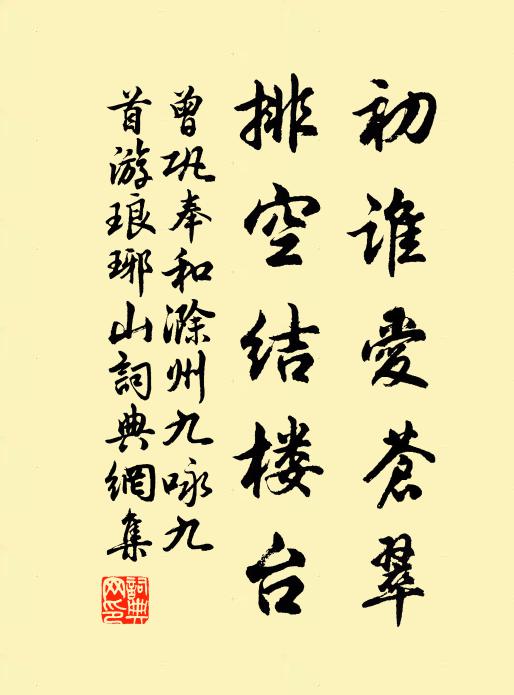 初谁爱蒼翠
排空结楼台
曾巩奉和滁州九咏九
首游琅琊山詞典網集
詞典网印